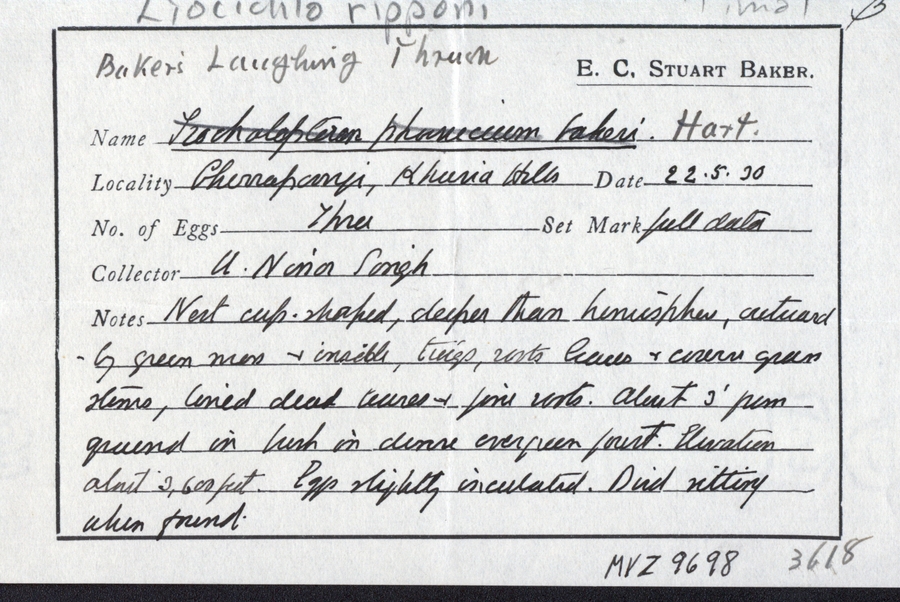 Liocichla ripponi Timal
Baker's Laughing Thrush
E. C. STUART BAKER.
Name Trochalopteron phoeniceum bakeri. Hart.
Locality Cherrapunji, Khasia Hills Date 22.5.30
No. of Eggs Three Set Mark full data
Collector U. Ninor Singh
Notes Nest cup-shaped, deeper than hemisphere, outward
-ly green moss + inside, twigs, roots leaves + coarse green
stems, lined dead leaves + fine roots. About 3' from
ground in bush in dense evergreen forest. Elevation
about 3,600 feet. Eggs slightly incubated. Bird sitting
when found.
MVZ 9698 3618